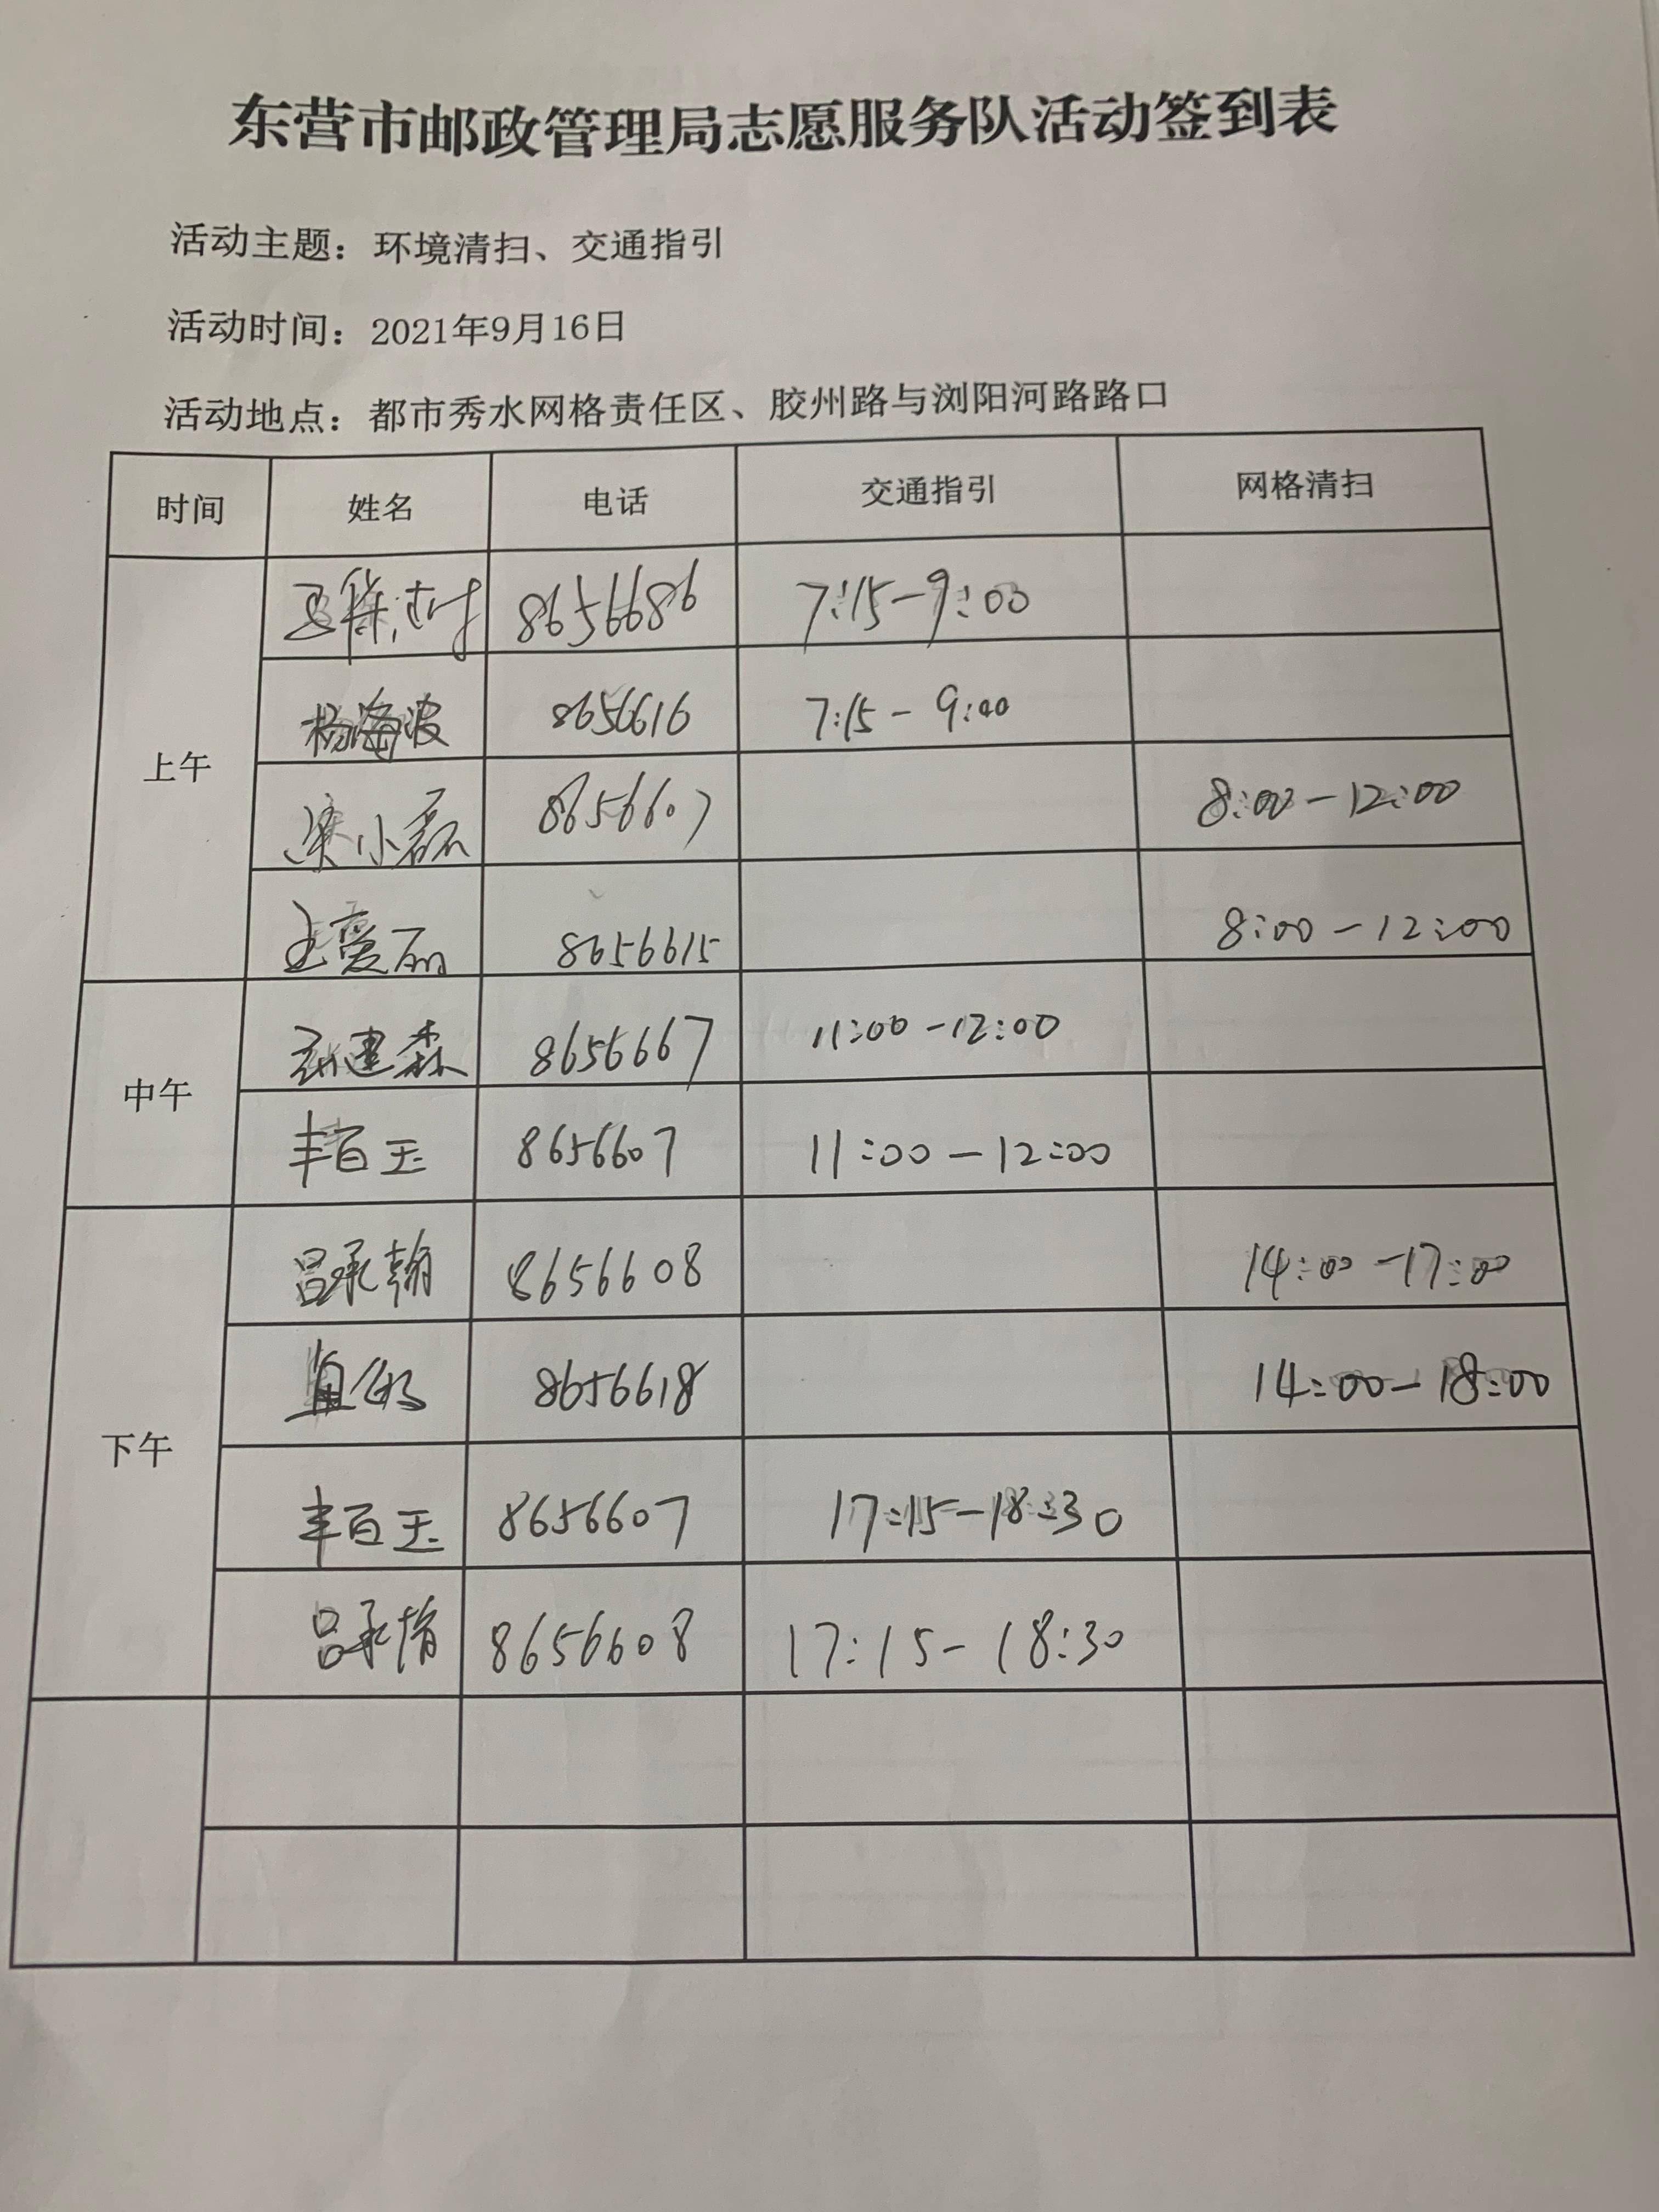 东营市邮政管理局志愿服务队活动签到表
活动主题：环境清扫、交通指引
活动时间：2021年9月16日
活动地点：都市秀水网格责任区、胶州路与浏阳河路路口
时间 姓名 电话 交通指引 网格清扫
上午
8656686 7:15-9:00
杨海波 8656616 7:15-9:00
梁小磊 8656607 8:00-12:00
王爱丽 8656615 8:00-12:00
中午
建森 8656667 11:00-12:00
丰百玉 8656607 11:00-12:00
下午
吕承翰 8656608 14:00-17:00
8656618 14:00-18:00
丰百玉 8656607 17:15-18:30
吕承翰 8656608 17:15-18:30